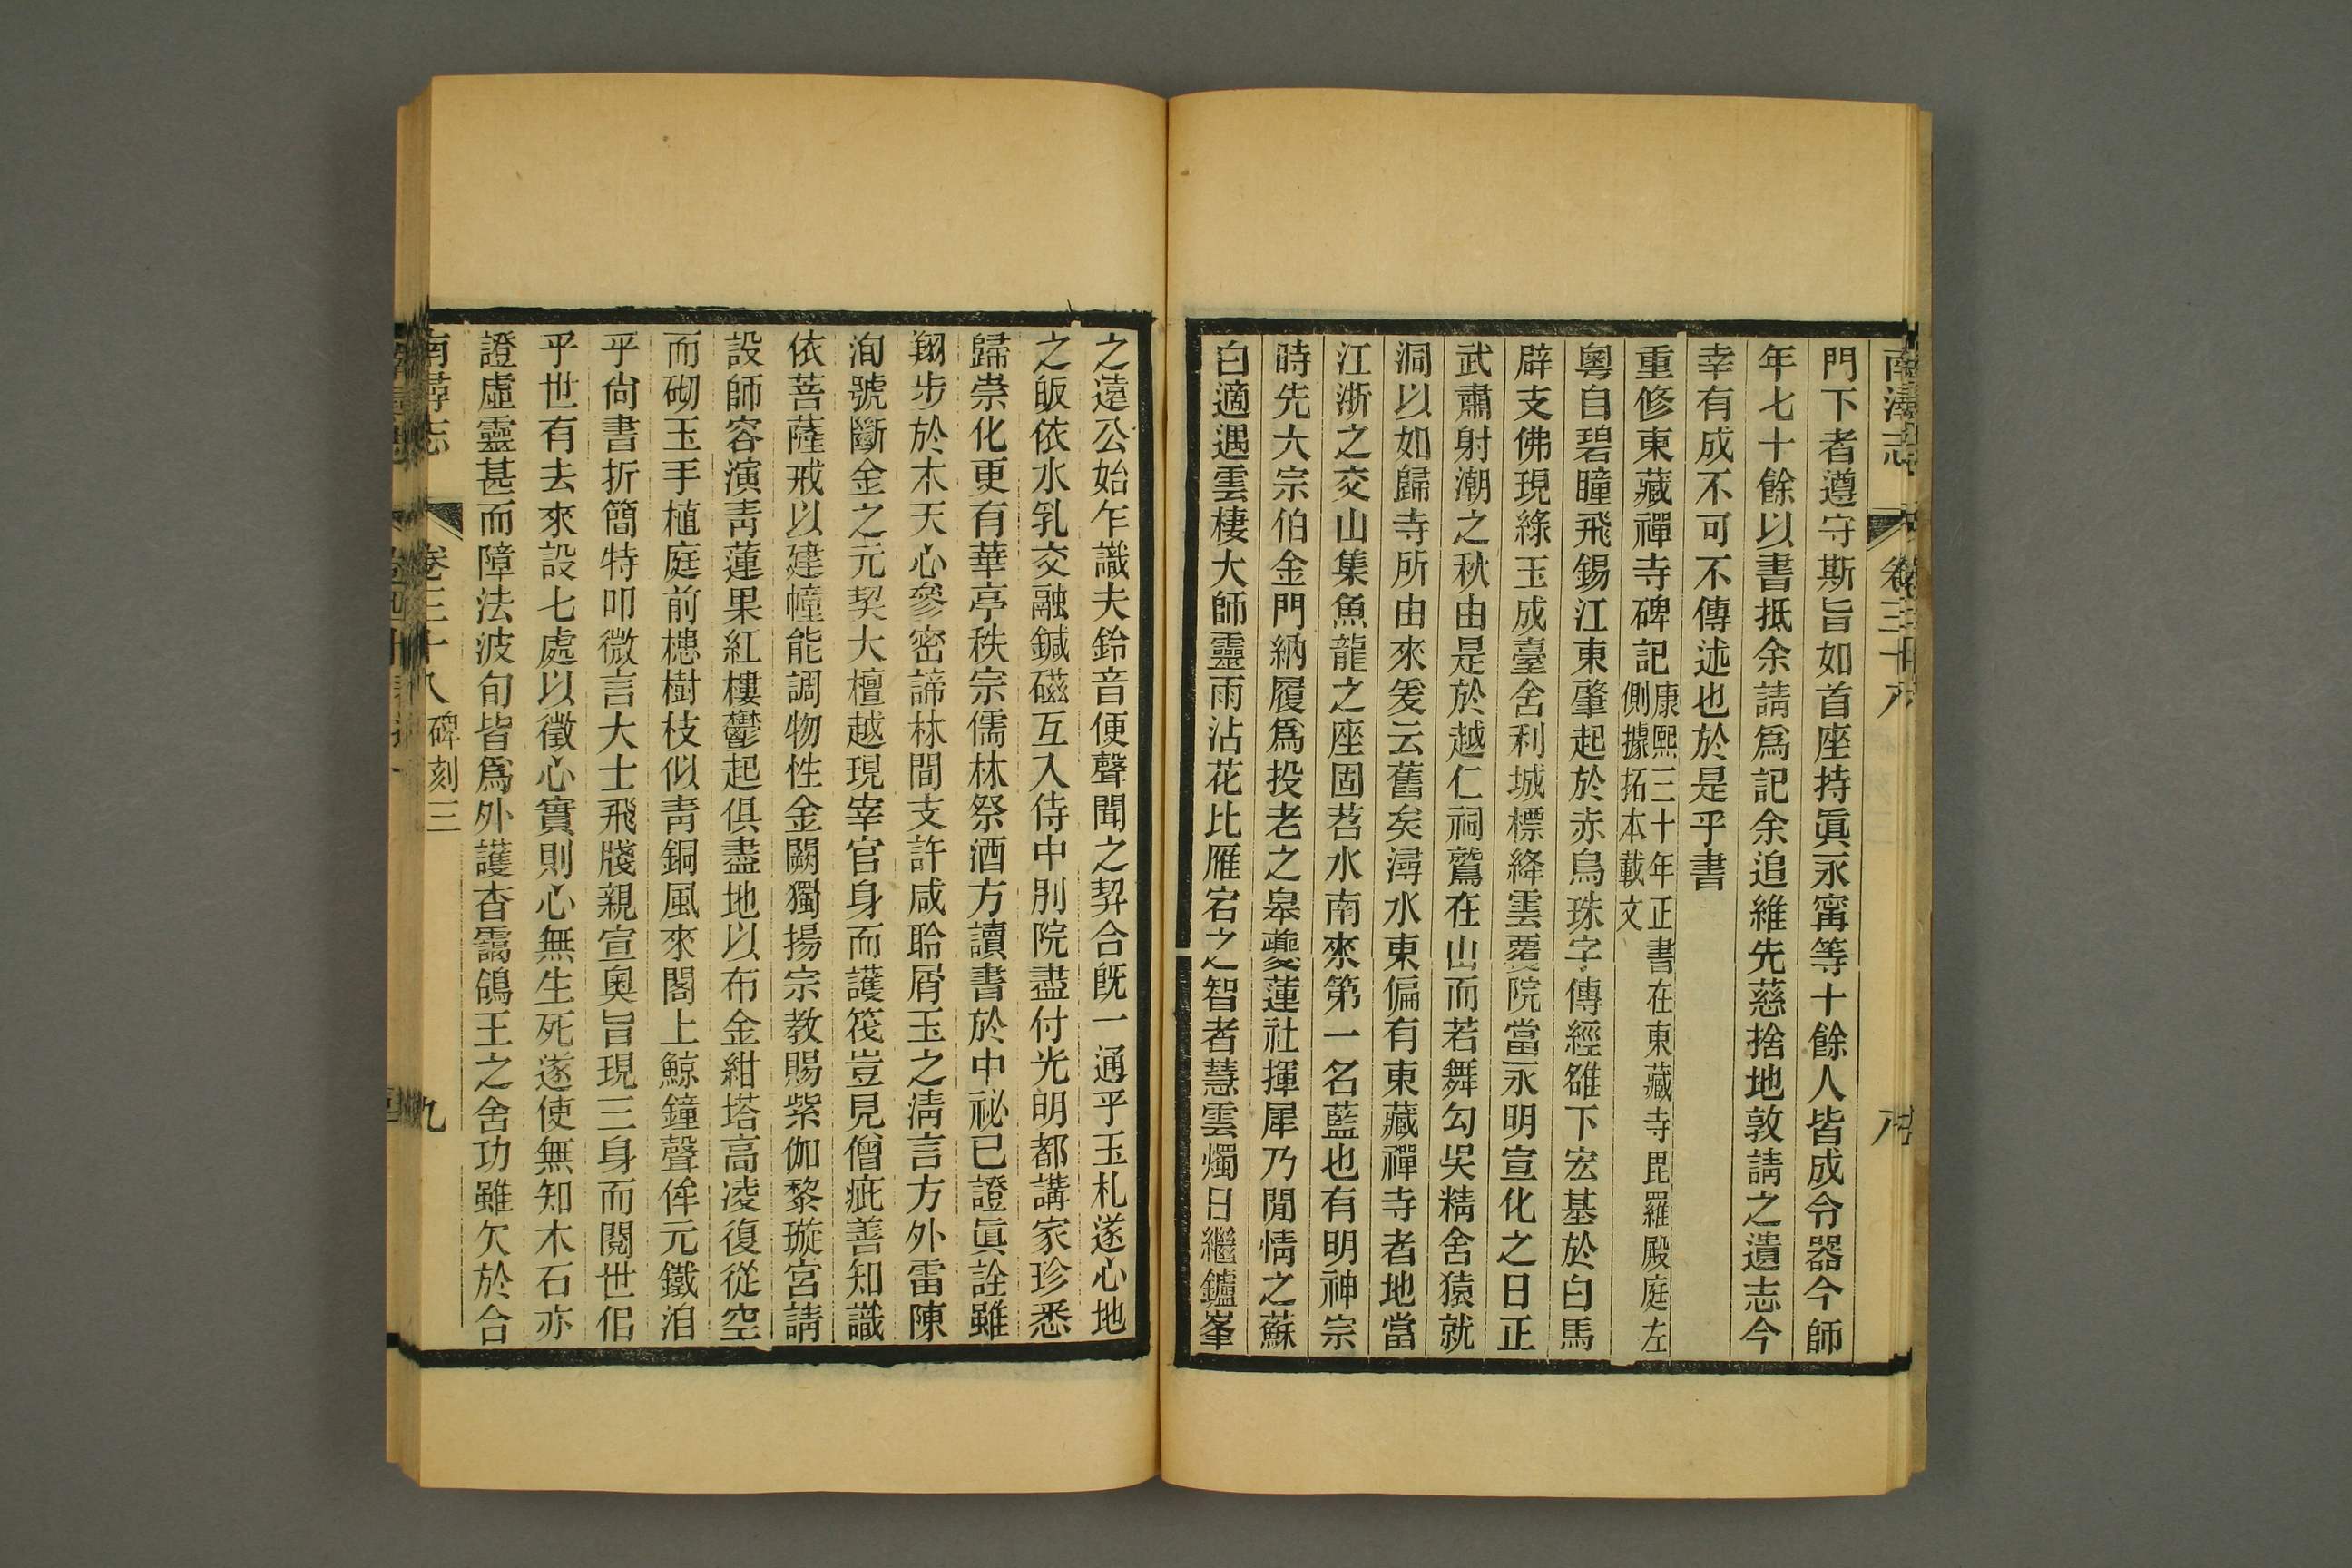 南潯志 卷三十八 八
門下者遵守斯旨如首座持眞永甯等十餘人皆成令器今師
年七十餘以書抵余請爲記余追維先慈捨地敦請之遺志今
幸有成不可不傳述也於是乎書
重修東藏禪寺碑記康熙三十年正書在東藏寺毘羅殿庭左
側據拓本載文
粵自碧瞳飛錫江東肇起於赤烏珠字傳經雒下宏基於白馬
辟支佛現綠玉成臺舍利城標絳雲覆院當永明宣化之日正
武肅射潮之秋由是於越仁祠鷲在山而若舞勾吳精舍猿就
洞以如歸寺所由來爰云舊矣潯水東偏有東藏禪寺者地當
江浙之交山集魚龍之座固苕水南來第一名藍也有明神宗
時先大宗伯金門納履爲投老之皋夔蓮社揮犀乃閒情之蘇
白適遇雲棲大師靈雨沾花比雁宕之智者慧雲燭日繼鑪峯
之遠公始乍識夫鈴音便聲聞之契合旣一通乎玉札遂心地
之皈依水乳交融鍼磁互入侍中別院盡付光明都講家珍悉
歸崇化更有華亭秩宗儒林祭酒方讀書於中祕已證眞詮雖
翔步於木天心參密諦林間支許咸聆屑玉之淸言方外雷陳
洵號斷金之元契大檀越現宰官身而護筏豈見僧疵善知識
依菩薩戒以建幢能調物性金闕獨揚宗教賜紫伽黎璇宮請
設師容演靑蓮果紅樓鬱起俱盡地以布金紺塔高凌復從空
而砌玉手植庭前橞樹枝似靑銅風來閣上鯨鐘聲侔元鐵洎
乎尙書折簡特叩微言大士飛牋親宣奧旨現三身而閱世侶
乎世有去來設七處以徵心實則心無生死遂使無知木石亦
證虛靈甚而障法波旬皆爲外護杳靄鴿王之舍功雖欠於合
南潯志 卷三十八 碑刻三 九